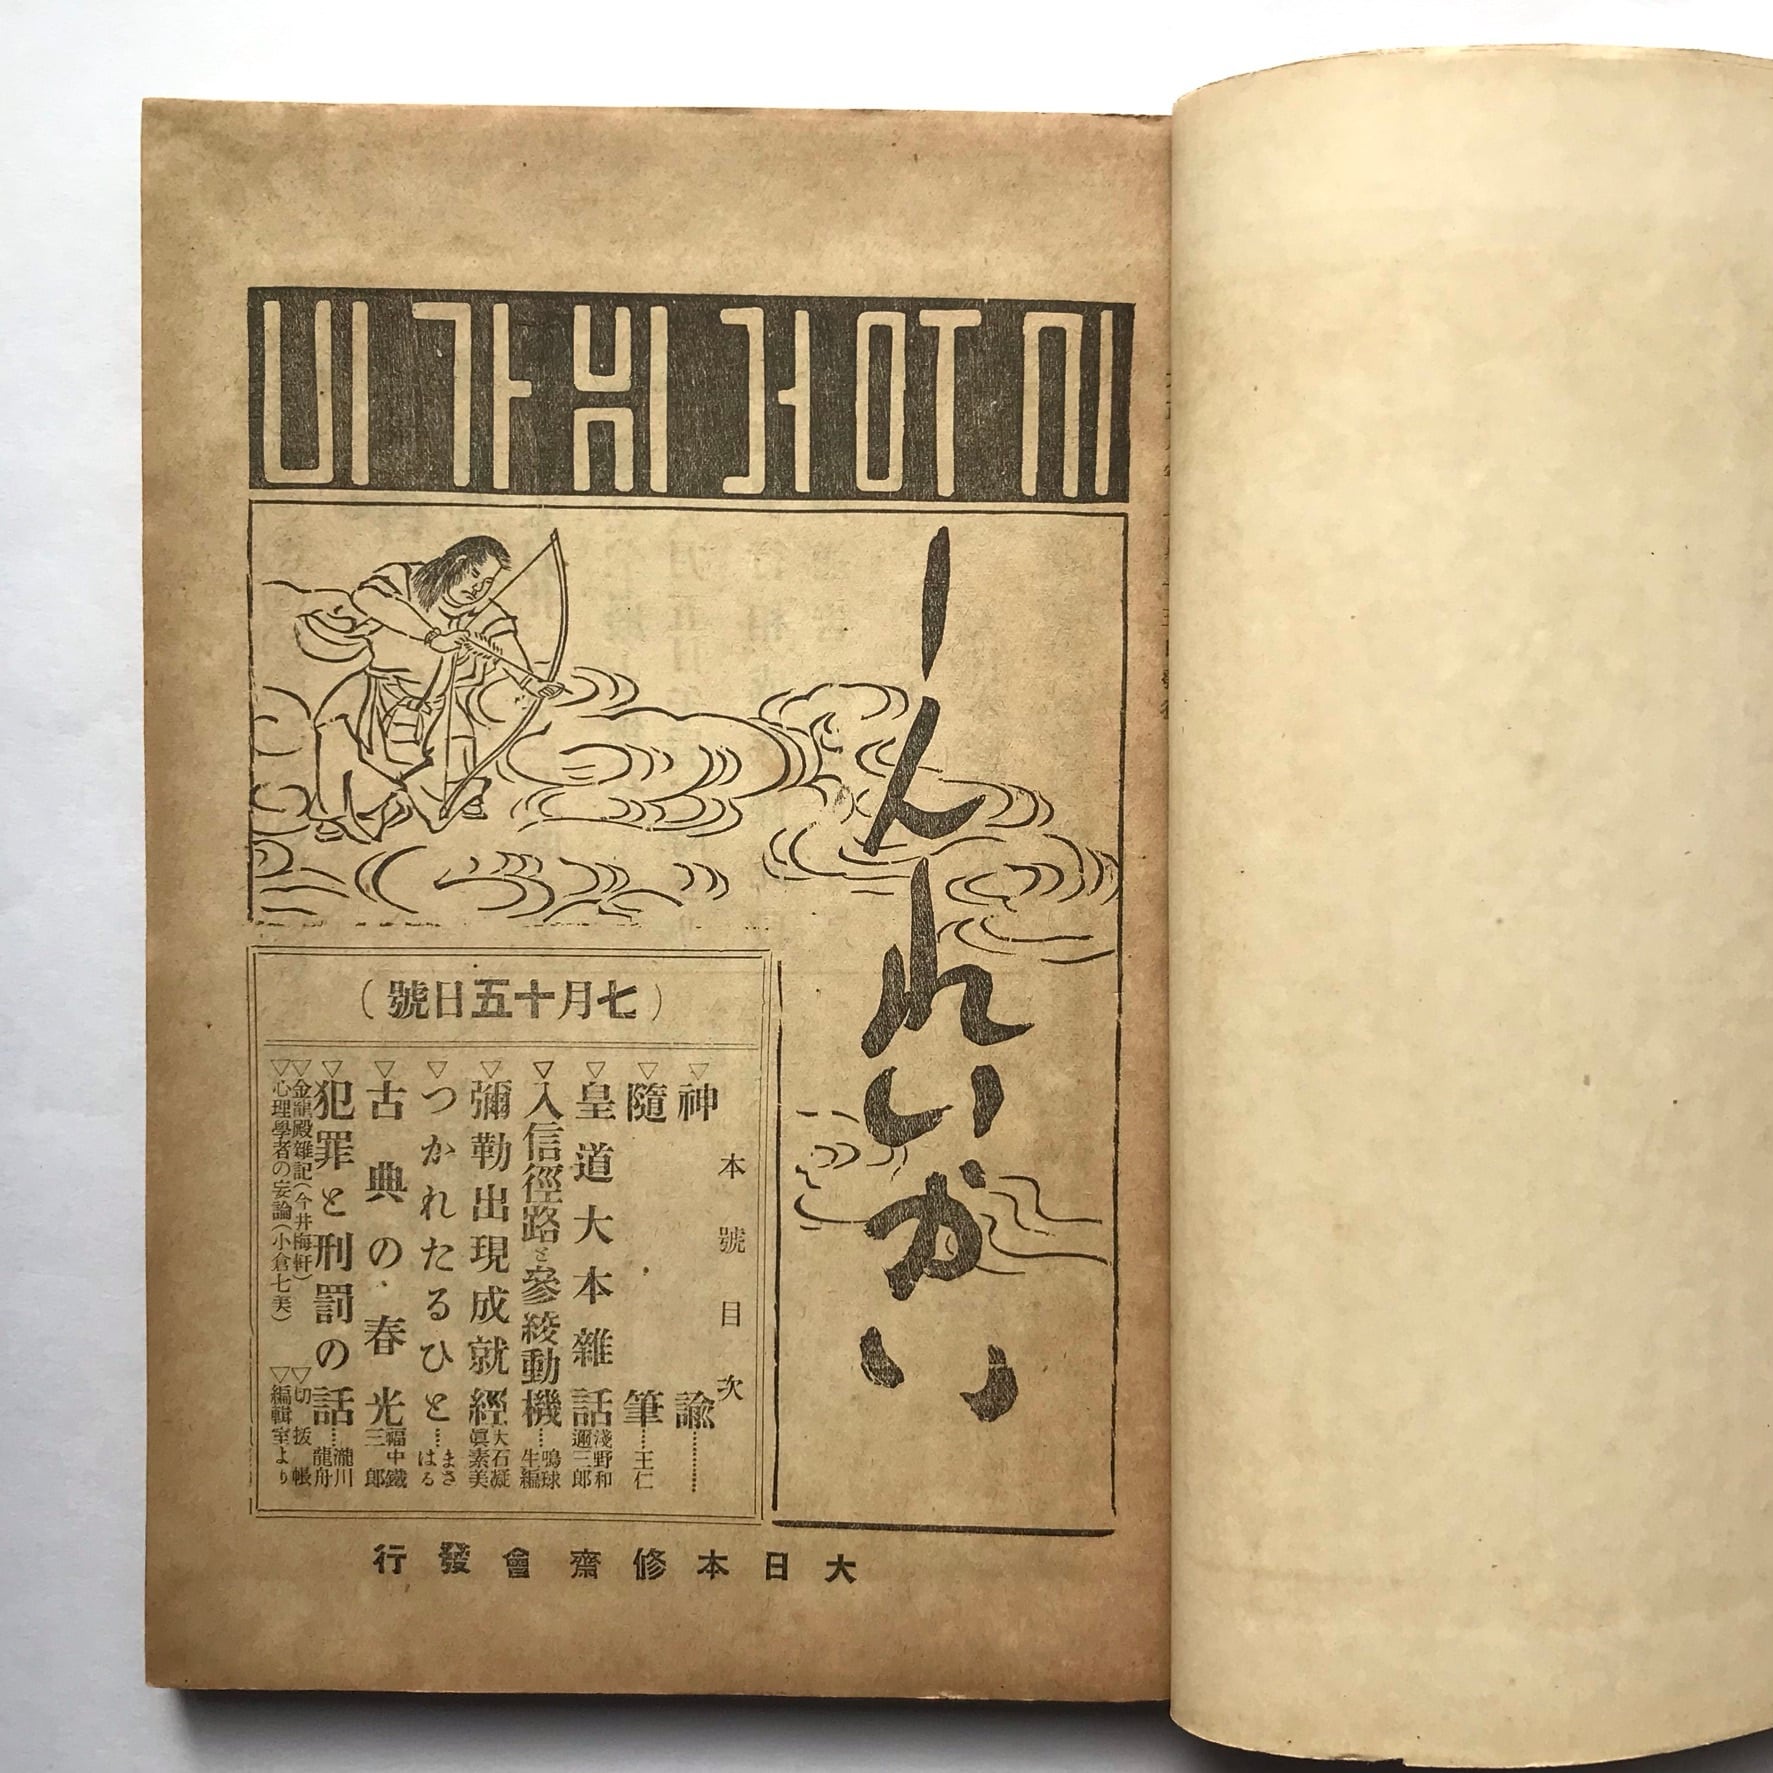 しんれいかい
（七月十五日號）
本號目次
▽神諭…………
▽隨筆……王仁
▽皇道大本雜話 淺野和邇三郎
▽入信徑路と參綾動機…鳴球生編
▽彌勒出現成就經 大石凝眞素美
▽つかれたるひと…まさはる
▽古典の春光 福中鐵三郎
▽犯罪と刑罰の話……瀧川龍舟
▽金龍殿雜記（今井梅軒） ▽切拔帳
▽心理學者の妄論（小倉七美） ▽編輯室より
大日本修齋會發行